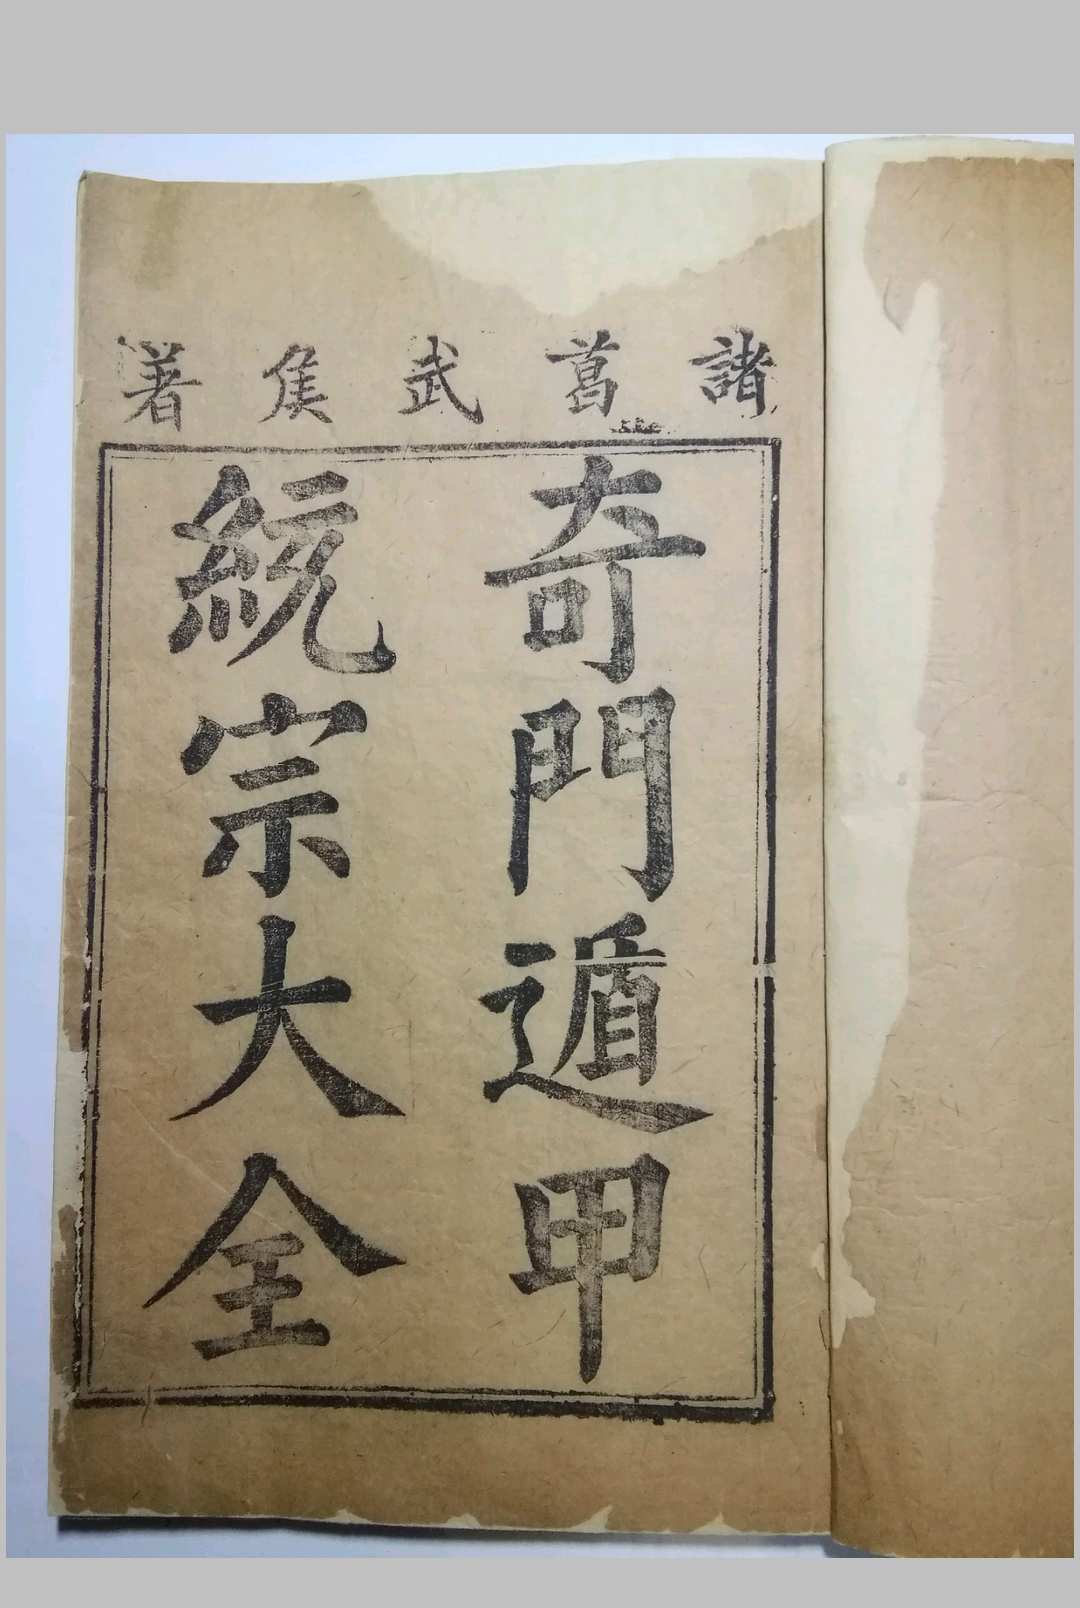 諸葛武侯著
奇門遁甲
統宗大全